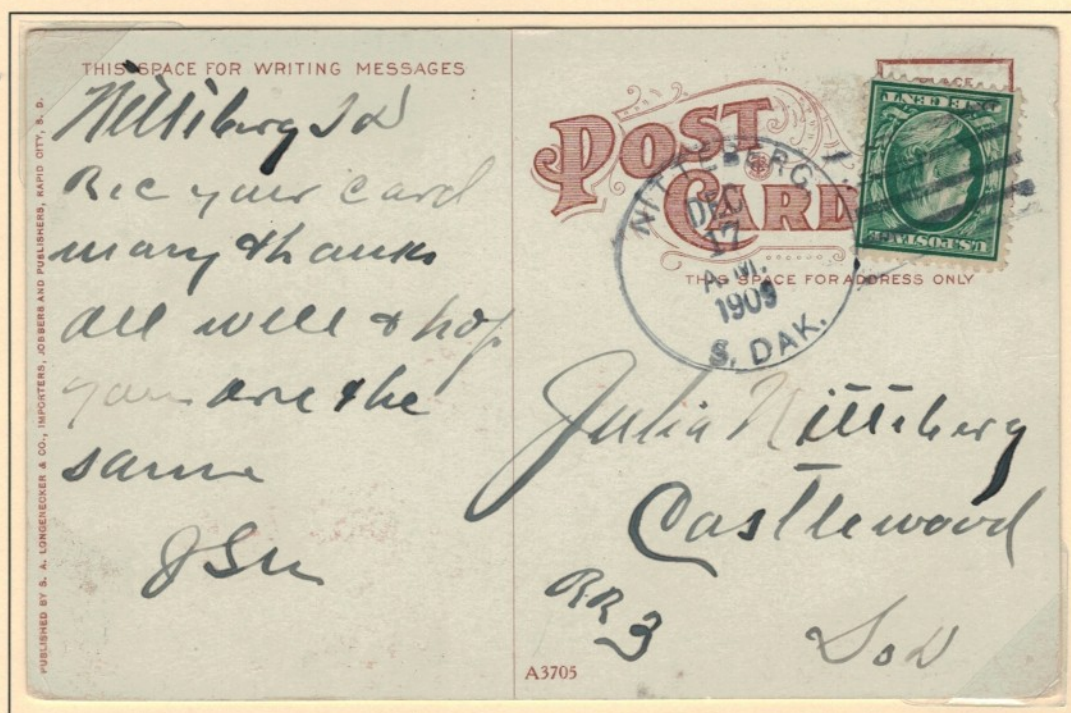 THIS SPACE FOR WRITING MESSAGES
Nittiberg S D
Rec your card
many thanks
all well & hop
you are the
same
PUBLISHED BY S. A. LONGENECKER & CO., IMPORTERS, JOBBERS AND PUBLISHERS, RAPID CITY, S. D.
POST
CARD
PLACE
ONE CENT
U.S. POSTAGE
NITTEBERG
DEC
17
A.M.
1909
S. DAK.
THIS SPACE FOR ADDRESS ONLY
Julia Nittiberg
Castlewood
RR 3
So D
A3705